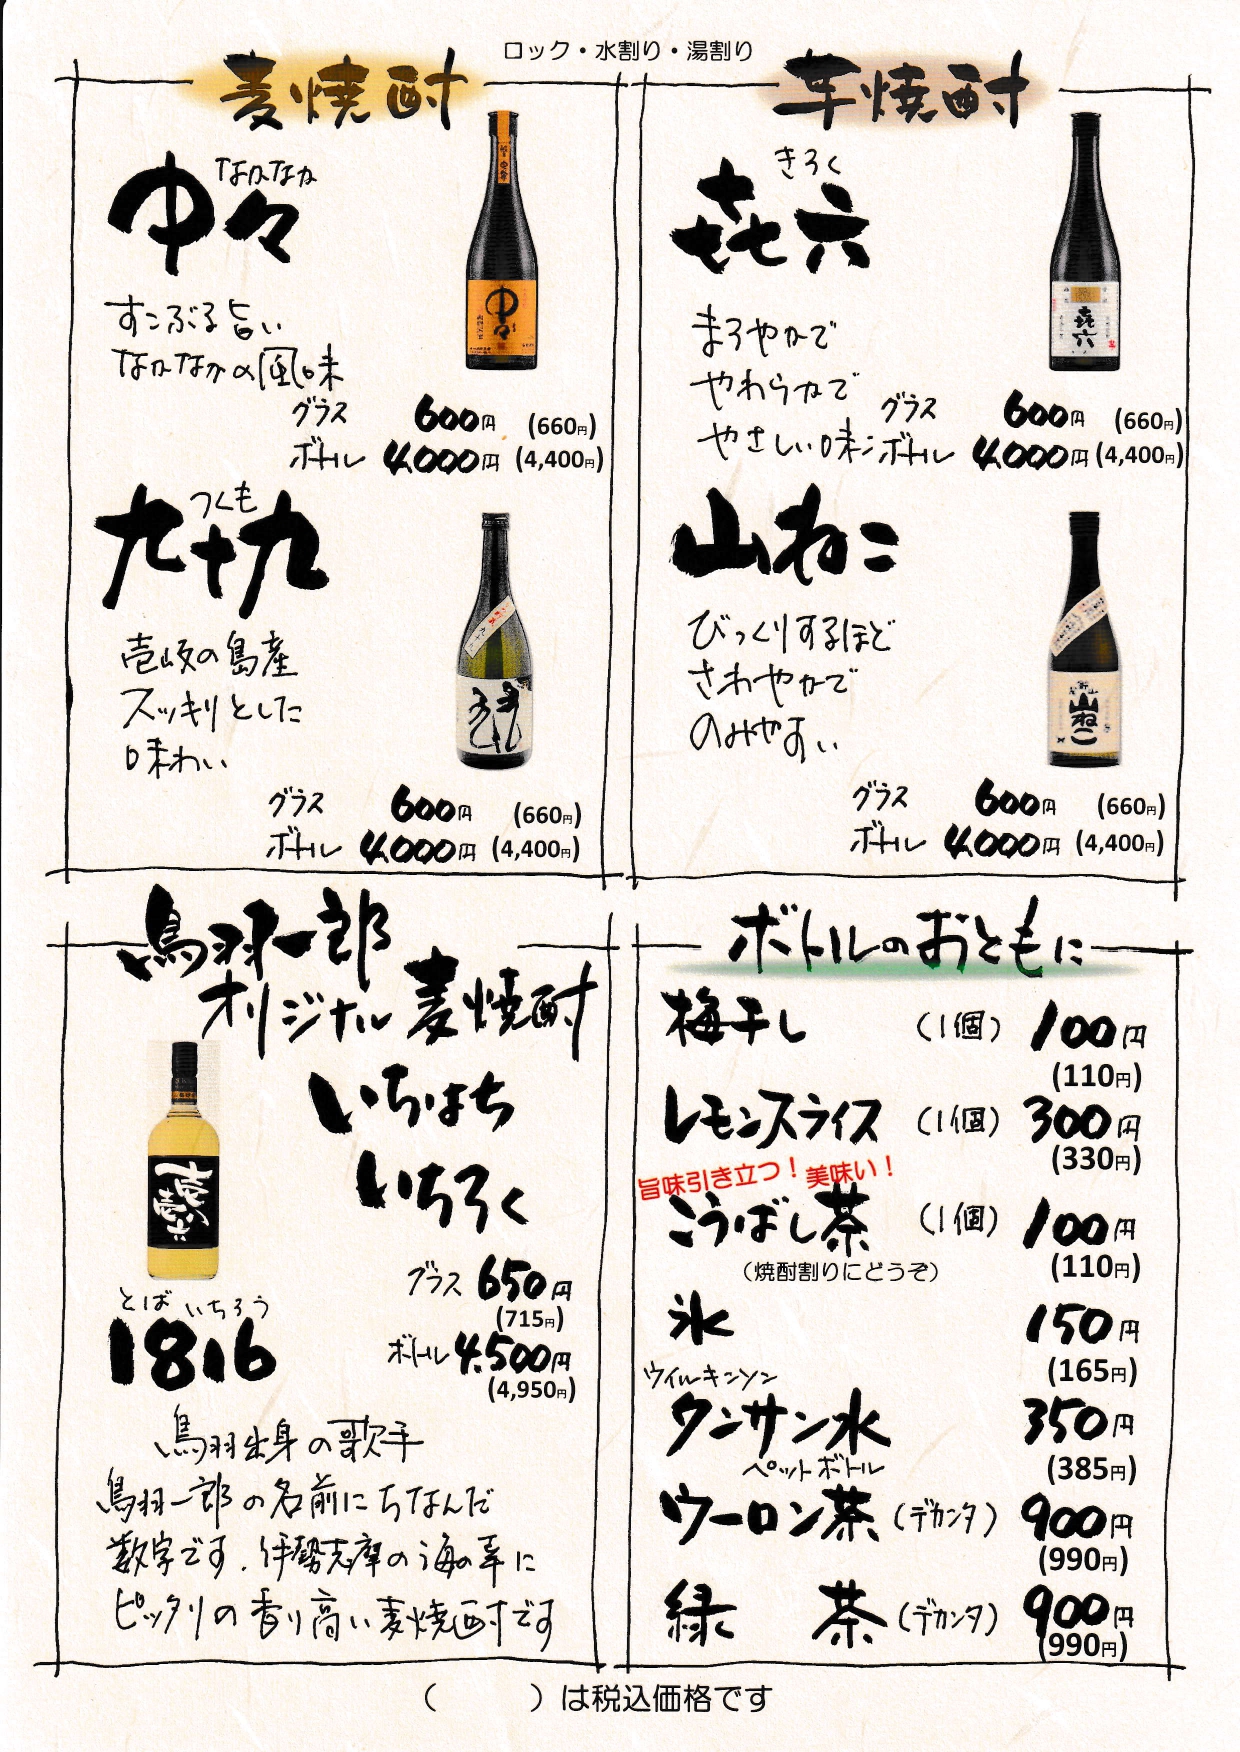 ロック・水割り・湯割り
麦焼酎
なかなか
中々
すこぶる旨い
なかなかの風味
グラス 600円 (660円)
ボトル 4,000円 (4,400円)
つくも
九十九
壱岐の島産
スッキリとした
味わい
グラス 600円 (660円)
ボトル 4,000円 (4,400円)
芋焼酎
きろく
㐂六
まろやかで
やわらかで
やさしい味こ
グラス 600円 (660円)
ボトル 4,000円 (4,400円)
山ねこ
びっくりするほど
さわやかで
のみやすい
グラス 600円 (660円)
ボトル 4,000円 (4,400円)
鳥羽一郎
オリジナル麦焼酎
いちはち
いちろく
グラス 650円
(715円)
ボトル 4,500円
(4,950円)
とば いちろう
1816
鳥羽出身の歌手
鳥羽一郎の名前にちなんだ
数字です.伊勢志摩の海の幸に
ピッタリの香り高い麦焼酎です
ボトルのおともに
梅干し (1個) 100円
(110円)
レモンスライス (1個) 300円
(330円)
旨味引き立つ!美味い!
こうばし茶 (1個) 100円
(110円)
(焼酎割りにどうぞ)
氷 150円
(165円)
ウイルキンソン
タンサン水 350円
ペットボトル (385円)
ウーロン茶 (デカンタ) 900円
(990円)
緑 茶 (デカンタ) 900円
(990円)
( )は税込価格です